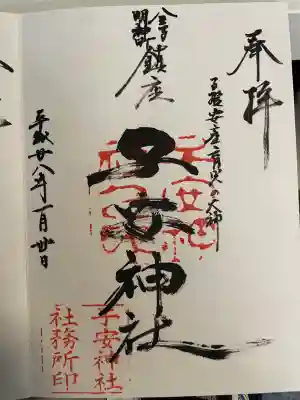 奉拝
子授安産育児の大神
鎮座
子安神社
平成廿八年一月廿日
子安神社
社務所印